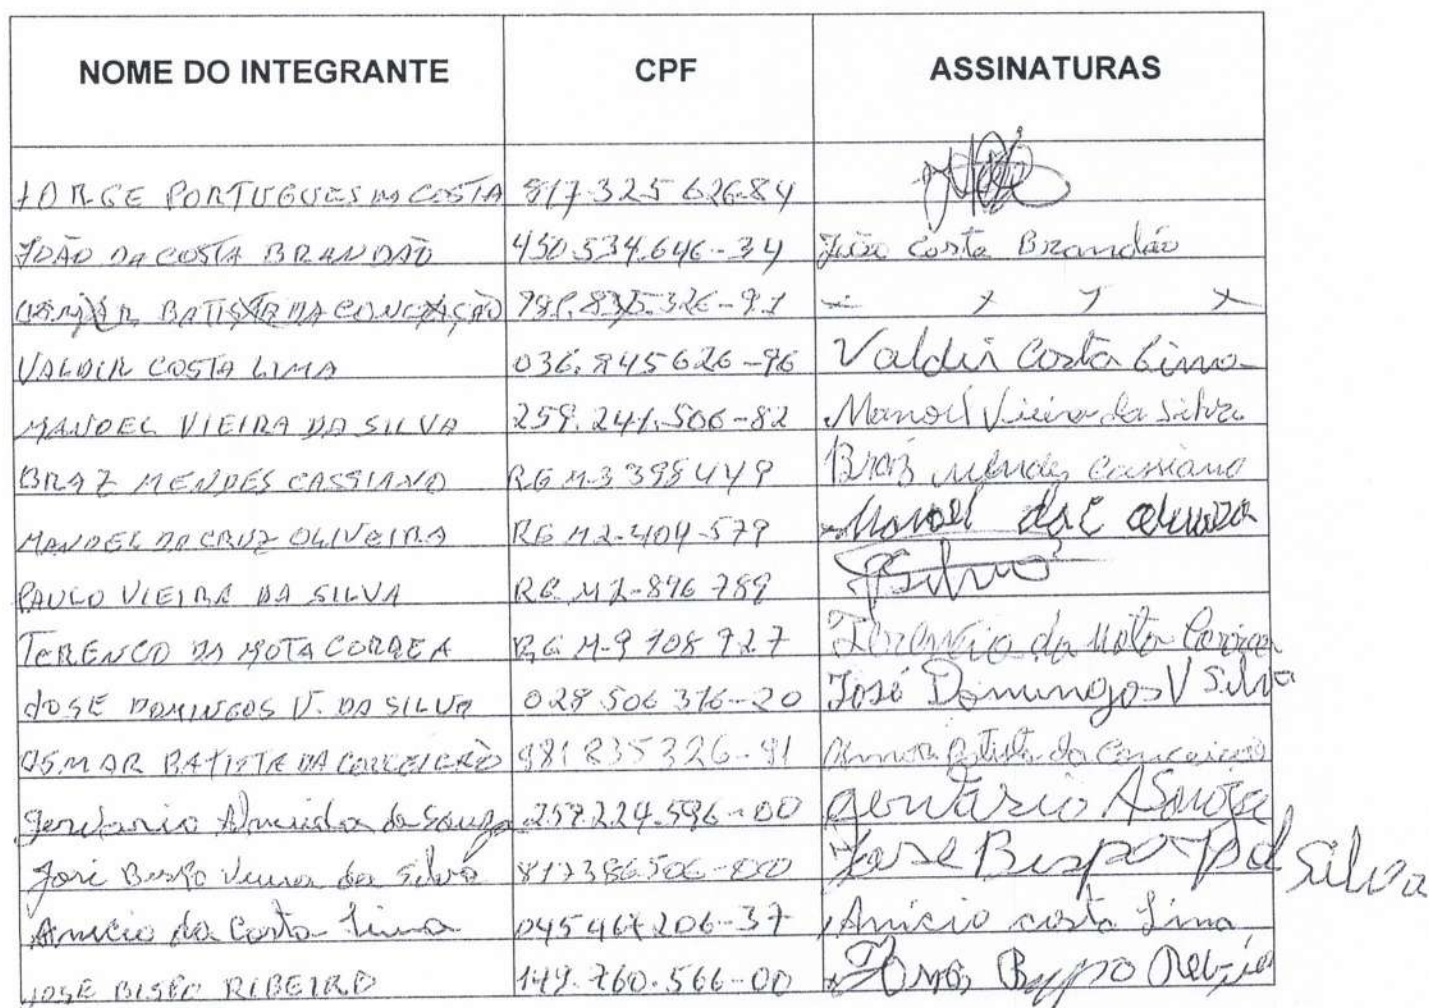 NOME DO INTEGRANTE CPF ASSINATURAS
JORGE PORTUGUES DA COSTA 817.325 626-84
JOÃO DA COSTA BRANDÃO 450.534.646-34 João Costa Brandão
BATISTA DA CONCEIÇÃO x x x
VALDIR COSTA LIMA 036.845626-96 Valdir Costa Lima
MANOEL VIEIRA DA SILVA 259.241.506-82 Manoel Vieira da Silva
BRAZ MENDES CASSIANO RG M-3 398449 Braz Mendes Cassiano
MANOEL DA CRUZ OLIVEIRA RG M2-404-579 Manoel da C
PAULO VIEIRA DA SILVA RG M2-896 789 PSilva
TERENCO DA MOTA CORREA RG M-9 108 727 da Mota Correa
JOSE DOMINGOS V. DA SILVA 028 506 316-20 José Domingos V Silva
OSMAR BATISTA DA CONCEICÃO 981 835326-91 Osmar Batista da Conceicão
Gervario Almeida de Souza 259.224.596-00 Gervazio A Souza
José Bispo Vieira da Silva 817386506-00 Jose Bispo Silva
Anicio da Costa Lima 045 461206-37 Anicio costa Lima
JOSE BISPO RIBEIRO 149.760.566-00